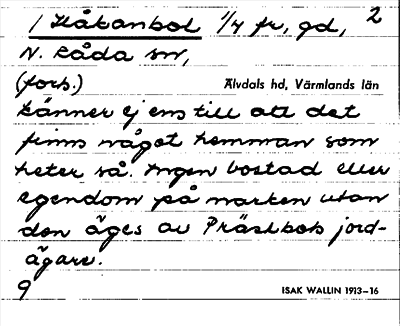 1 Håkanbol 1/4 fr, gd, 2
N. Råda sn,
(forts.) Älvdals hd, Värmlands län
känner ej ens till att det
finns något hemman som
heter så. Ingen bostad eller
egendom på marken utan
den äges av Präстbols jord-
ägare.
9 ISAK WALLIN 1913-16